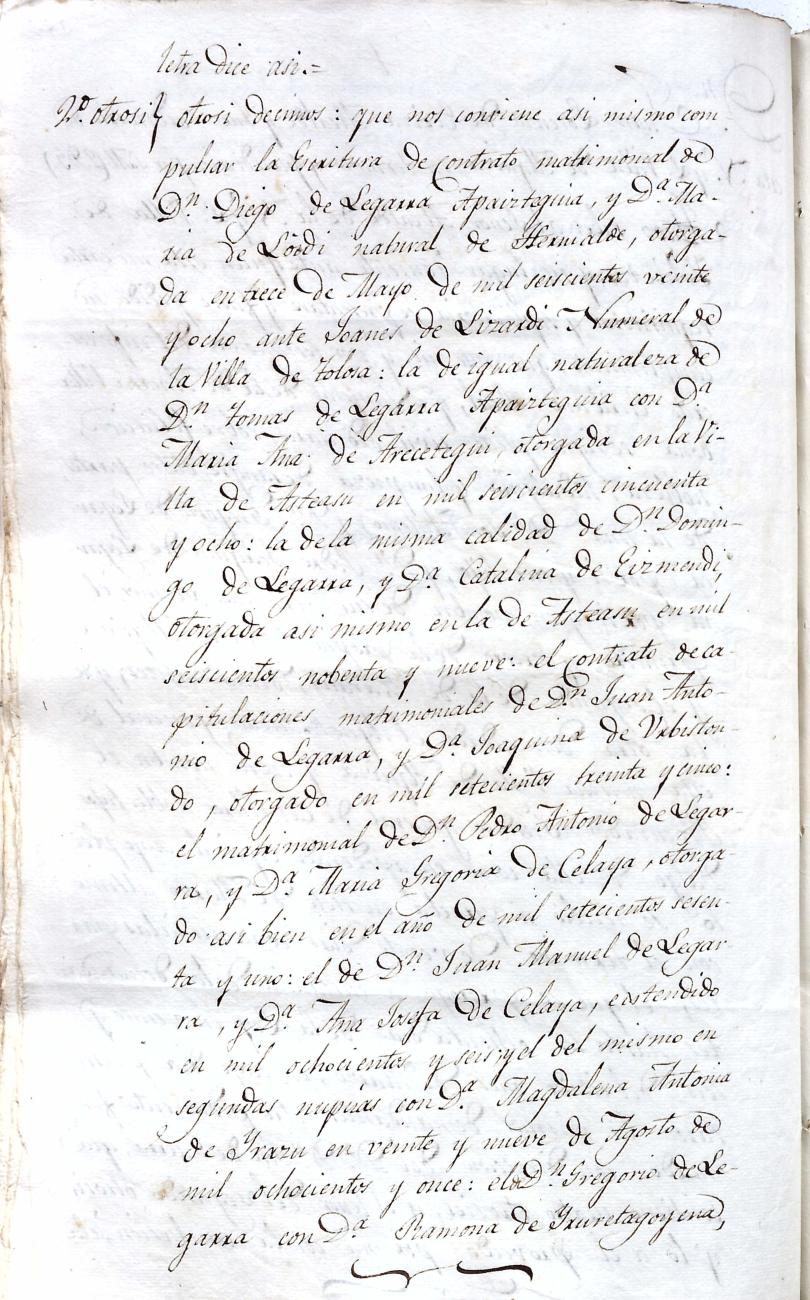 letra dice asi.=
2º. otrosi} otrosi decimos: que nos conviene asi mismo com-
pulsar la Escritura de contrato matrimonial de
Dn. Diego de Legarra Apaizteguia, y Da. Ma-
ria de Loidi natural de Hernialde, otorga-
da en trece de Mayo de mil seiscientos veinte
y ocho ante Joanes de Lizardi Numeral de
la Villa de Tolosa: la de igual naturaleza de
Dn. Tomas de Legarra Apaizteguia con Da.
Maria Ana de Arecetegui, otorgada en la Vi-
lla de Asteasu en mil seiscientos cincuenta
y ocho: la dela misma calidad de Dn. Domin-
go de Legarra, y Da. Catalina de Eizmendi,
otorgada asi mismo en la de Asteasu en mil
seiscientos nobenta y nueve: el contrato de ca-
pitulaciones matrimoniales de Dn. Juan Anto-
nio de Legarra, y Da. Joaquina de Urbiston-
do, otorgado en mil setecientos treinta y cinco:
el matrimonial de Dn. Pedro Antonio de Legar-
ra, y Da. Maria Gregoria de Celaya, otorga-
do asi bien en el año de mil setecientos sesen-
ta y uno: el de Dn. Juan Manuel de Legar-
ra, y Da. Ana Josefa de Celaya, estendido
en mil ochocientos y seis; y el del mismo en
segundas nupcias con Da. Magdalena Antonia
de Yrazu en veinte y nueve de Agosto de
mil ochocientos y once: el d Dn. Gregorio de Le-
garra con Da. Ramona de Yruretagoyena,